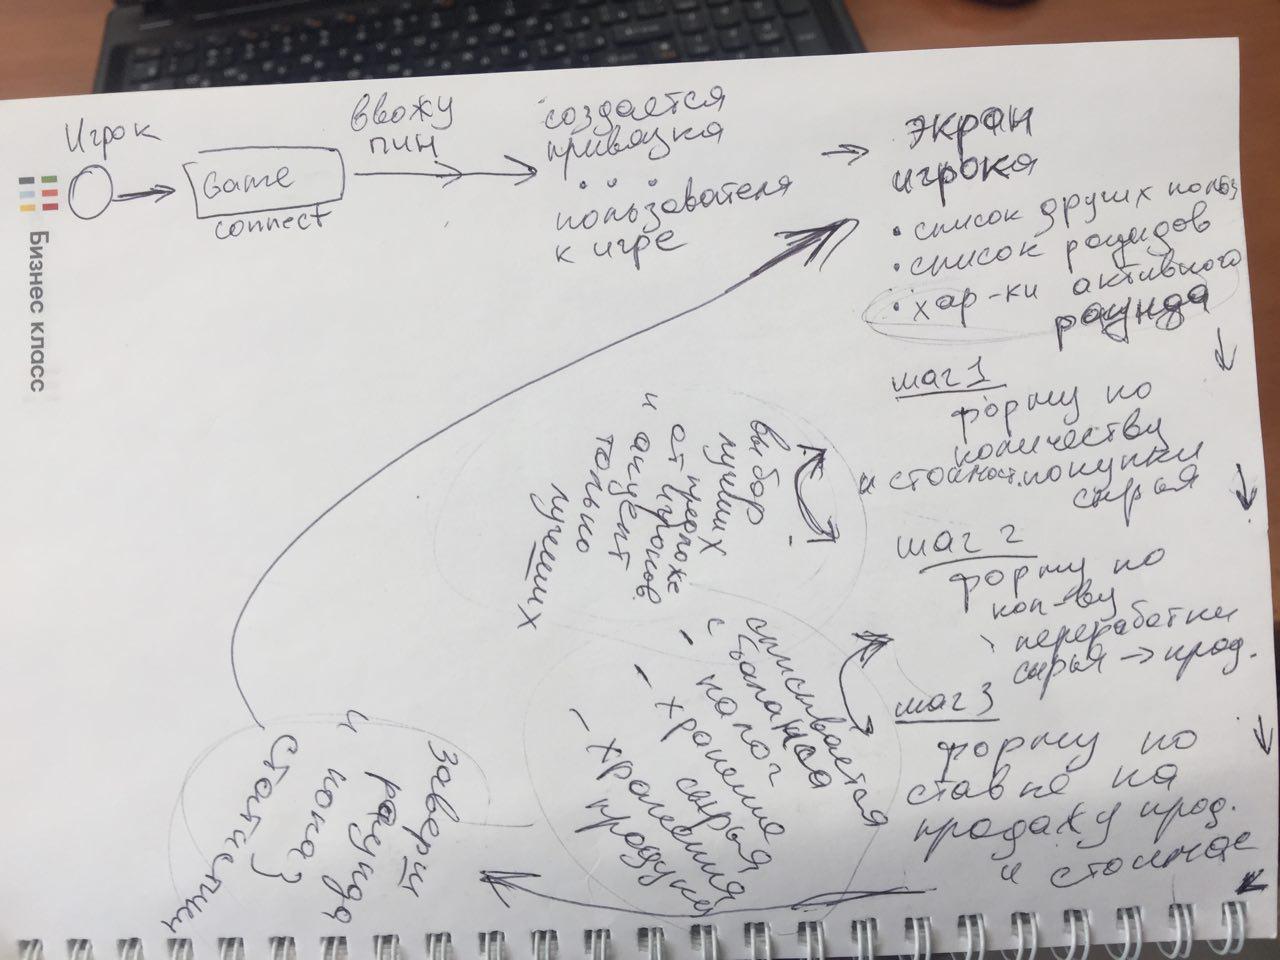 Игрок
Game
connect
ввожу
пин
создается
привязка
пользователя
к игре
экран
игрока
• список других польз
• список раундов
• хар-ки активного
раунда
шаг 1
форму по
количеству
и стоимост. покупки
сырья
шаг 2
форму по
кол-ву
переработки
сырья → прод.
шаг 3
форму по
ставке на
продажу прод.
и стоимос
выбор
лучших
от предложе
игроков
и акцепт
только
лучших
списывается
с баланса
- налог
- хранение
сырья
- хранения
продукта
заверш
раунда
и показ
статистики
Бизнес класс